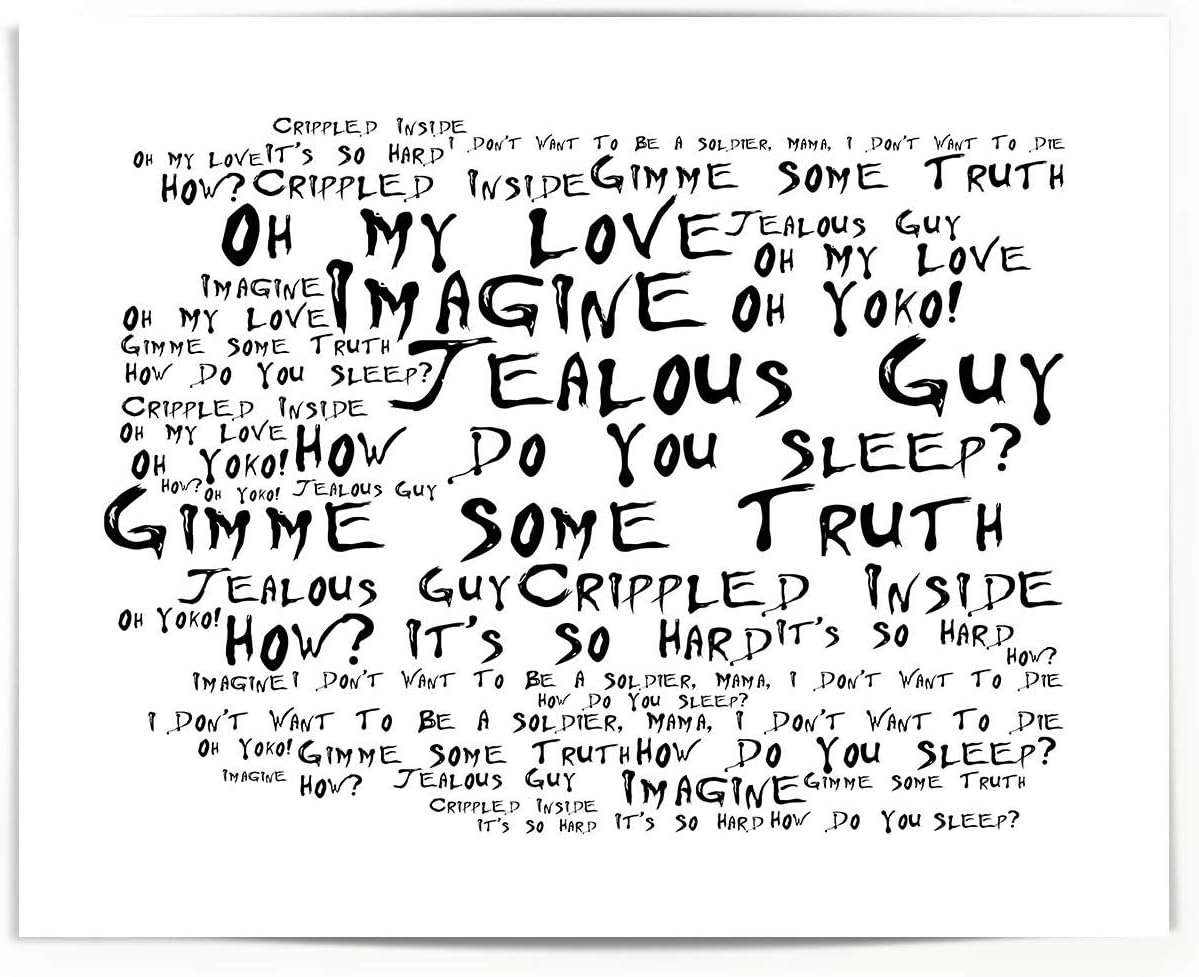 Crippled Inside
Oh my love It's so hard I Don't Want To Be a soldier, mama, I Don't Want To Die
How? Crippled Inside Gimme some Truth
Oh my love Jealous Guy
Oh my love
Imagine Imagine Oh Yoko!
Oh my love
Gimme some Truth
How Do You sleep? Jealous Guy
Crippled Inside
Oh my love How Do You sleep?
Oh Yoko!
How? Oh Yoko! Jealous Guy
Gimme some Truth
Jealous Guy Crippled Inside
Oh Yoko! How? It's so hard It's so hard
How?
Imagine I Don't Want To Be a soldier, mama, I Don't Want To Die
How Do You sleep?
I Don't Want To Be a soldier, mama, I Don't Want To Die
Oh Yoko! Gimme some Truth How Do You sleep?
Imagine How? Jealous Guy Imagine Gimme some Truth
Crippled Inside
It's so hard It's so hard How Do You sleep?